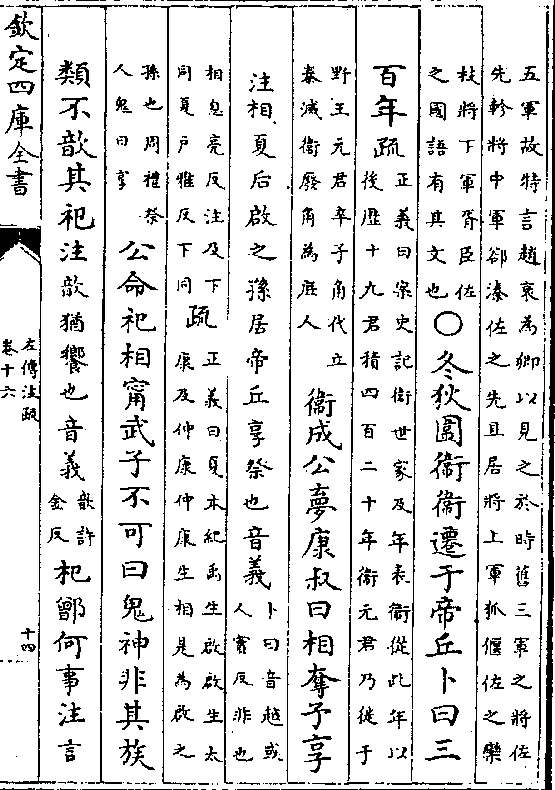 五軍故特言趙衰為卿以見之於時舊三軍之將佐
先軫將中軍郤溱佐之先且居將上軍狐偃佐之欒
枝將下軍胥臣佐
之國語有其文也
○冬狄圍衞衞遷于帝丘卜曰三
百年疏
正義曰案史記衞世家及年表衞從此年以
後歷十九君積四百二十年衞元君乃徙于
野王元君卒子角代立
秦滅衞廢角為庶人
衞成公夢康叔曰相奪予享
注相夏后啟之孫居帝丘享祭也音義
卜曰音越或
人實反非也
相息亮反注及下
同夏戶雅反下同
疏
正義曰夏本紀禹生啟啟生太
康及仲康仲康生相是為啟之
孫也周禮祭
人鬼曰享
公命祀相甯武子不可曰鬼神非其族
類不歆其祀注歆猶饗也音義
歆許
金反
杞鄫何事注言
欽定四庫全書
左傳注疏
卷十六
十四